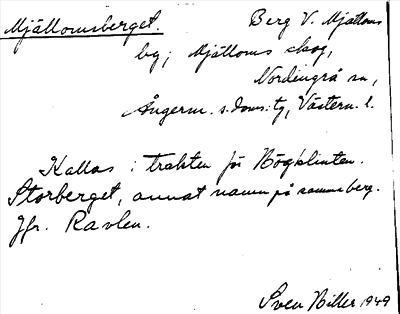 Mjällomsberget. Berg V. Mjälloms
by; Mjälloms skog,
Nordingrå sn,
Ångerm. s. doms:tg, Västern. l.
Kallas i trakten för Högklinten.
Storberget, annat namn på samma berg.
Jfr. Ravlen.
Sven Hiller 1949